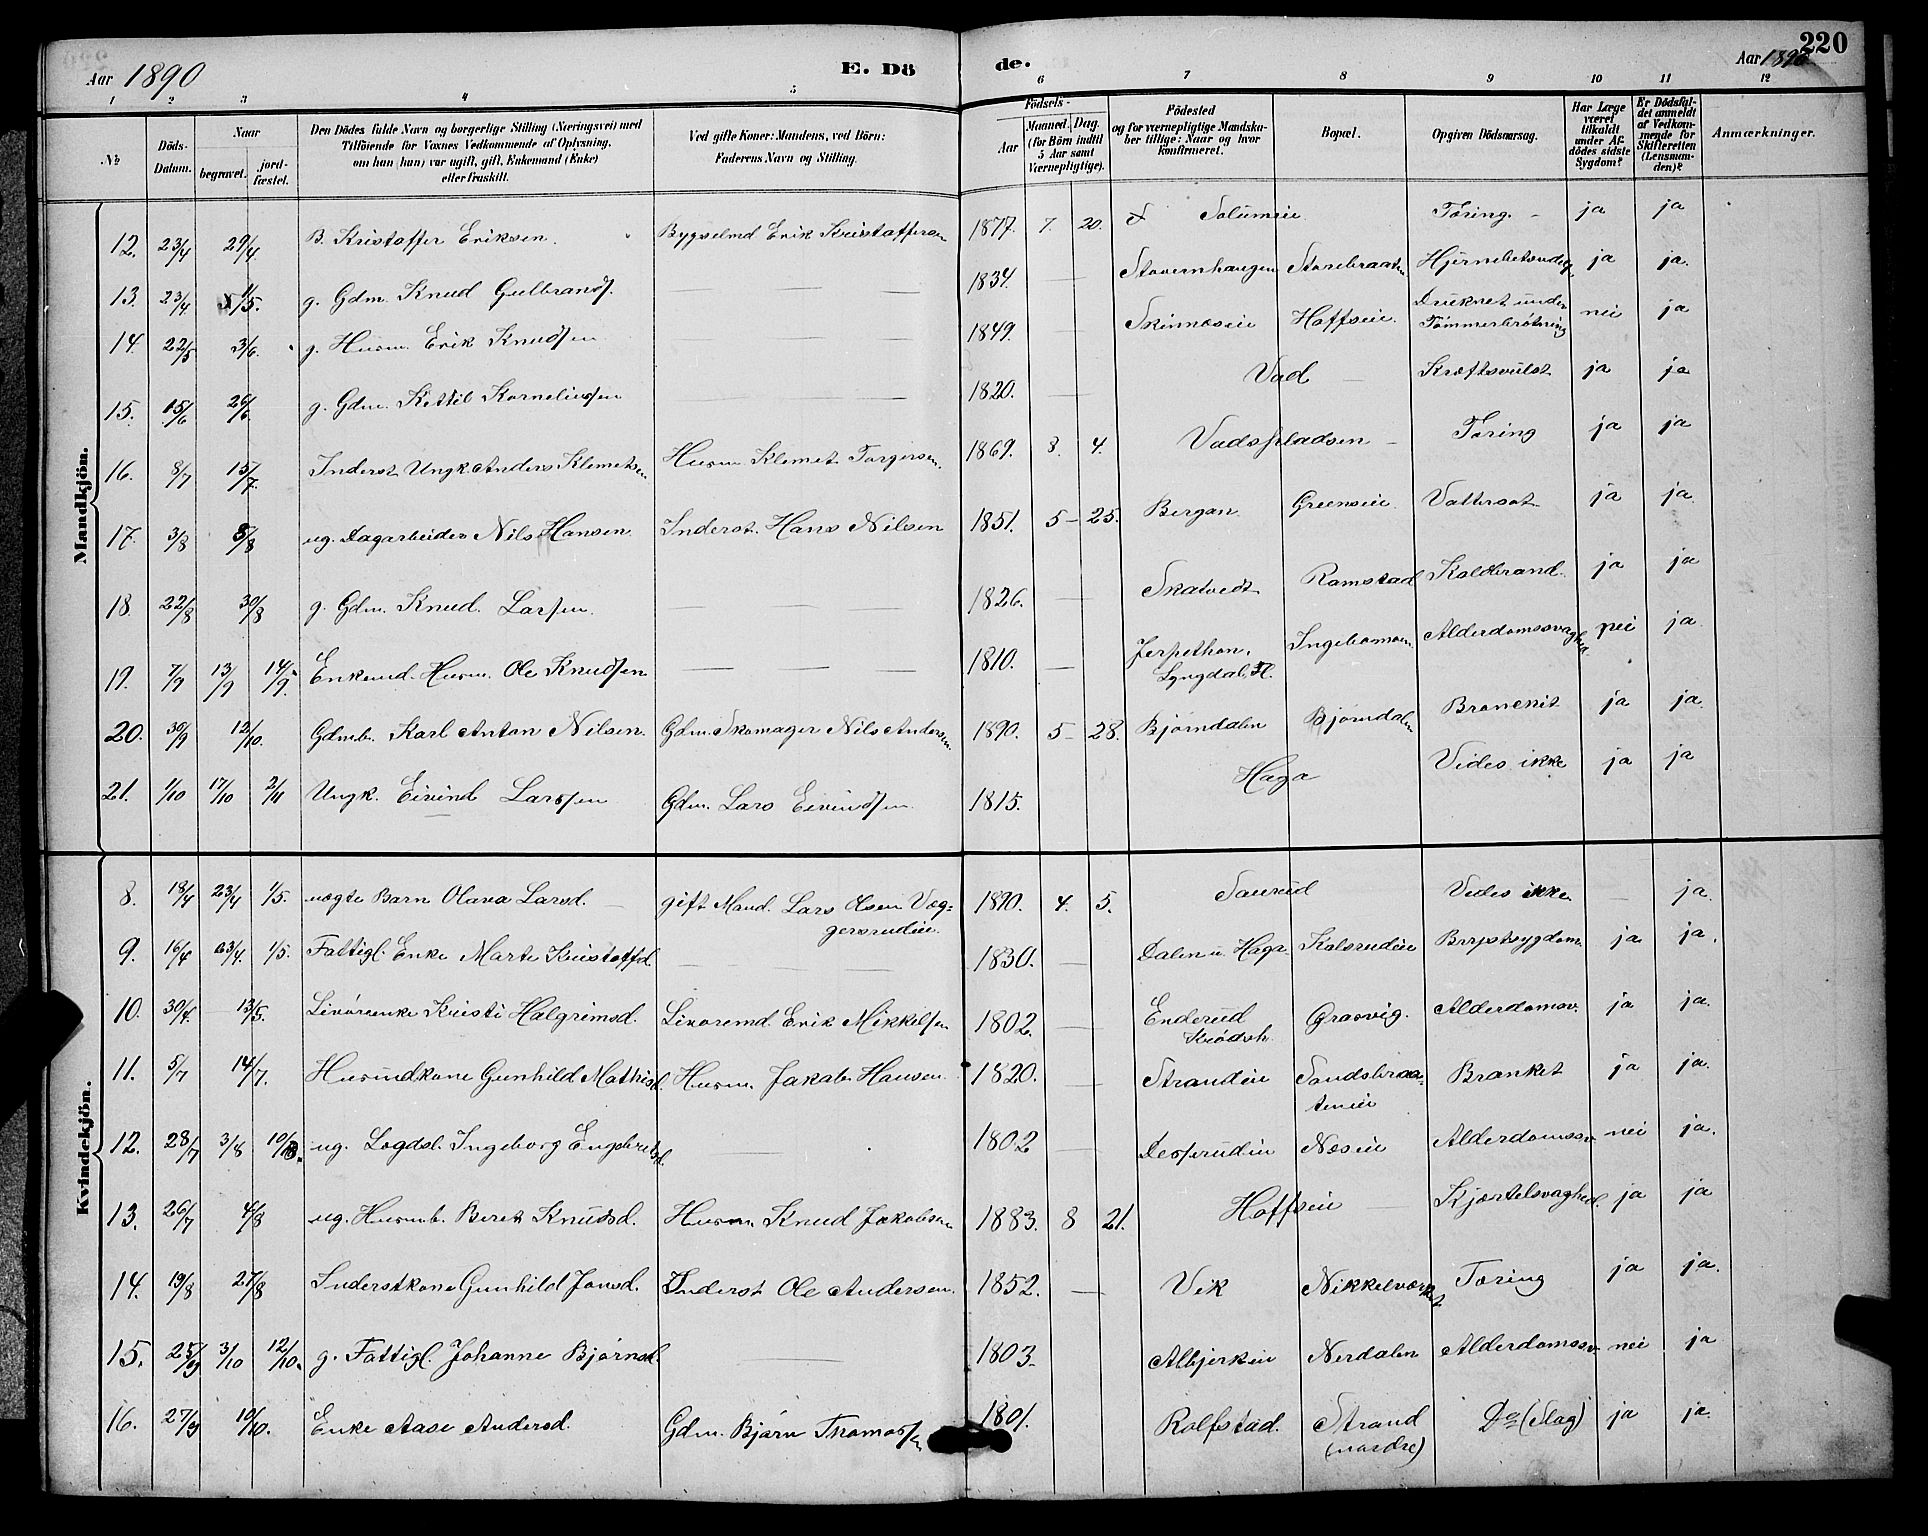 Aar 1890
E. Dö
de.
Aar 1890
220
1 2 3 4 5 6 7 8 9 10 11 12
№
Döds-Datum.
Naar
begravet.
jord-fæstet.
Den Dödes fulde Navn og borgerlige Stilling (Næringsvei) med
Tilföiende for Voxnes Vedkommende af Oplysning,
om han (hun) var ugift, gift, Enkemand (Enke)
eller fraskilt.
Ved gifte Koner: Mandens, ved Börn:
Faderens Navn og Stilling.
Födsels-
Aar
Maaned. Dag.
(for Börn indtil
5 Aar samt
Værnepligtige).
Födested
og for værnepligtige Mandska-
ber tillige: Naar og hvor
konfirmeret.
Bopæl.
Opgiven Dödsaarsag.
Har Læge
været
tilkaldt
under Af-
dödes sidste
Sygdom?
Er Dödsfal-
det anmeldt
af Vedkom-
mende for
Skifteretten
(Lensman-
den)?
Anmærkninger.
Mandkjön.
12. 23/4 29/4. B. Kristoffer Eriksen. Bygselmd Erik Kristoffersen 1877. 7. 20. Solumeie Tæring. ja ja
13. 23/4 1/5. g. Gdm. Knud Gulbrands. 1834. Stovernhaugen Storebraaten Hjernebetændelse ja ja.
14. 22/5 3/6. g. Husm. Erik Knudsen 1849. Skinneseie Hoffseie. Druknet under Tømmerbrøtning nei ja
15. 15/6 26/6. g. Gdm. Kittil Korneliussen 1820. Vad Kræftsvulst ja ja
16. 8/7 15/7. Inderst Ungk. Anders Klemetsen Husm. Klemet Torgersen. 1869. 8. 4. Vadspladsen Tæring ja ja
17. 3/8 8/8 ug. Dagarbeider Nils Hansen. Inderst. Hans Nilsen 1851. 5 25. Bergan Greenseie. Vattersot ja ja.
18. 22/8 30/8 g. Gdm. Knud Larsen. 1826. Skatvedt Ramstad Koldbrand. ja ja
19. 7/9 13/9 14/9. Enkemd. Husm. Ole Knudsen 1810. Jerpethon, Lyngdal, Fl. Ingebomoen Alderdomssvaghed. nei ja
20. 30/9 12/10. Gdmb. Karl Anton Nilsen. Gdm. Skomager Nils Andersen 1890. 5 28. Bjørndalen Bjørndalen Bronchit ja ja
21. 1/10 17/10 2/11 Ungk. Eivind Larssen Gdm. Lars Eivindsen 1815. Haga Vides ikke ja ja
Kvindekjön.
8. 18/4 23/4 1/5. uægte Barn Olava Larsd. gift Mand. Lars Olsen Væg-gersrudeie. 1890. 4. 5. Saurud Vides ikke ja.
9. 16/4 23/4. 1/5. Fattigl. Enke Marte Kristoffd. 1830. Dalen u. Haga Kolsrudeie Brystsygdom. ja ja.
10. 30/4. 13/5. Livøreenke Kristi Halgrimsd. Livøremd. Erik Mikkelsen 1802. Enderud Krødsh. Græsvig. Alderdomsv. ja ja.
11. 5/7 14/7. Husmdkone Gunhild Mathisd. Husm. Jakob Hansen 1820. Strandeie Sandsbraa-teneie Brænket ja ja.
12. 28/7 3/8 10/8. ug. Logdsl. Ingeborg Engebretsd. 1802 Desserudeie Næseie Alderdomssv. nei ja.
13. 26/7 4/8 ug. Husmb. Berit Knudsd. Husm. Knud Jakobsen 1883. 8 21. Hoffseie Kjertelsvaghed. ja ja
14. 19/8 27/8 Inderstkone Gunhild Jonsd. Inderst Ole Andersen. 1852. Vik Nikkelværket Tæring ja ja.
15. 25/9 3/10 12/10. g. Fattigl. Johanne Bjørnsd. 1803. Albjerkeie Nerdalen Alderdomssv. nei ja
16. 27/9 10/10. Enke Aase Andersd. Gdm. Bjørn Thomassen 1801. Rolfstad. Strand (nordre) Do (Slag) ja ja.